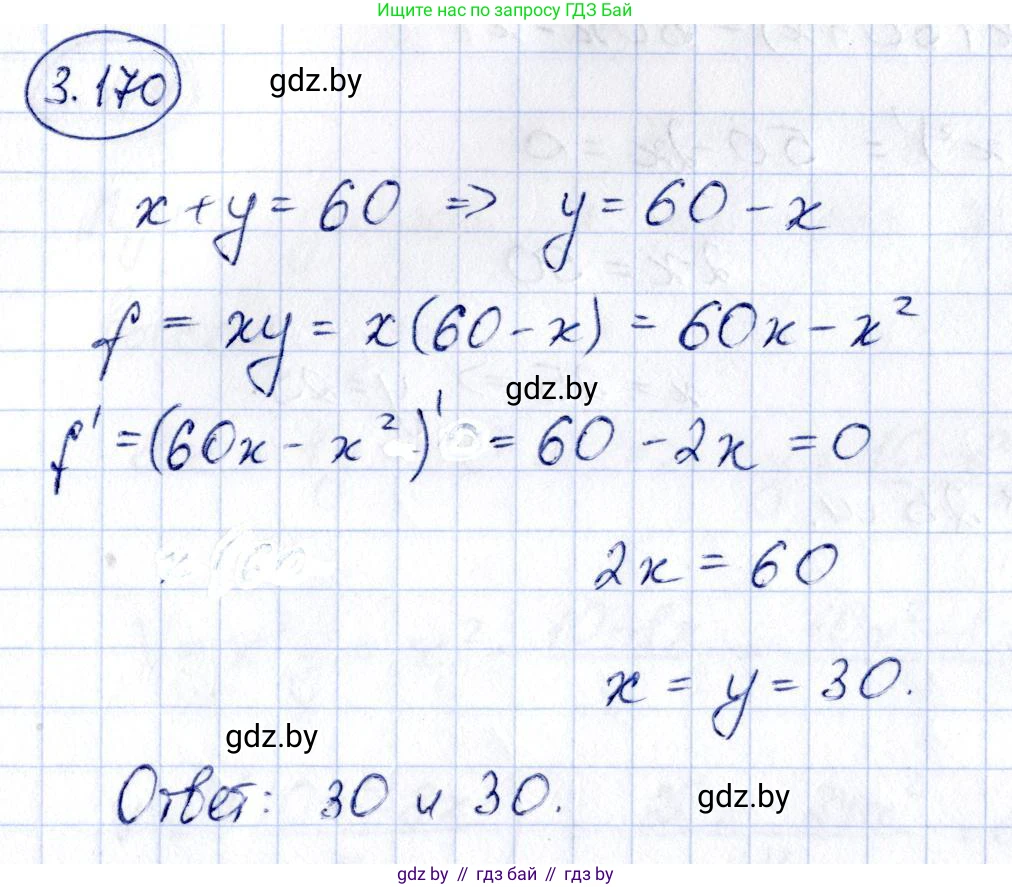 Ищите нас по запросу ГДЗ Бай
3.170
gdz.by
x + y = 60 => y = 60 - x
f = xy = x(60 - x) = 60x - x²
gdz.by
f' = (60x - x²)' = 60 - 2x = 0
2x = 60
x = y = 30.
gdz.by
Ответ: 30 и 30.
gdz.by
gdz.by // гдз бай // гдз by